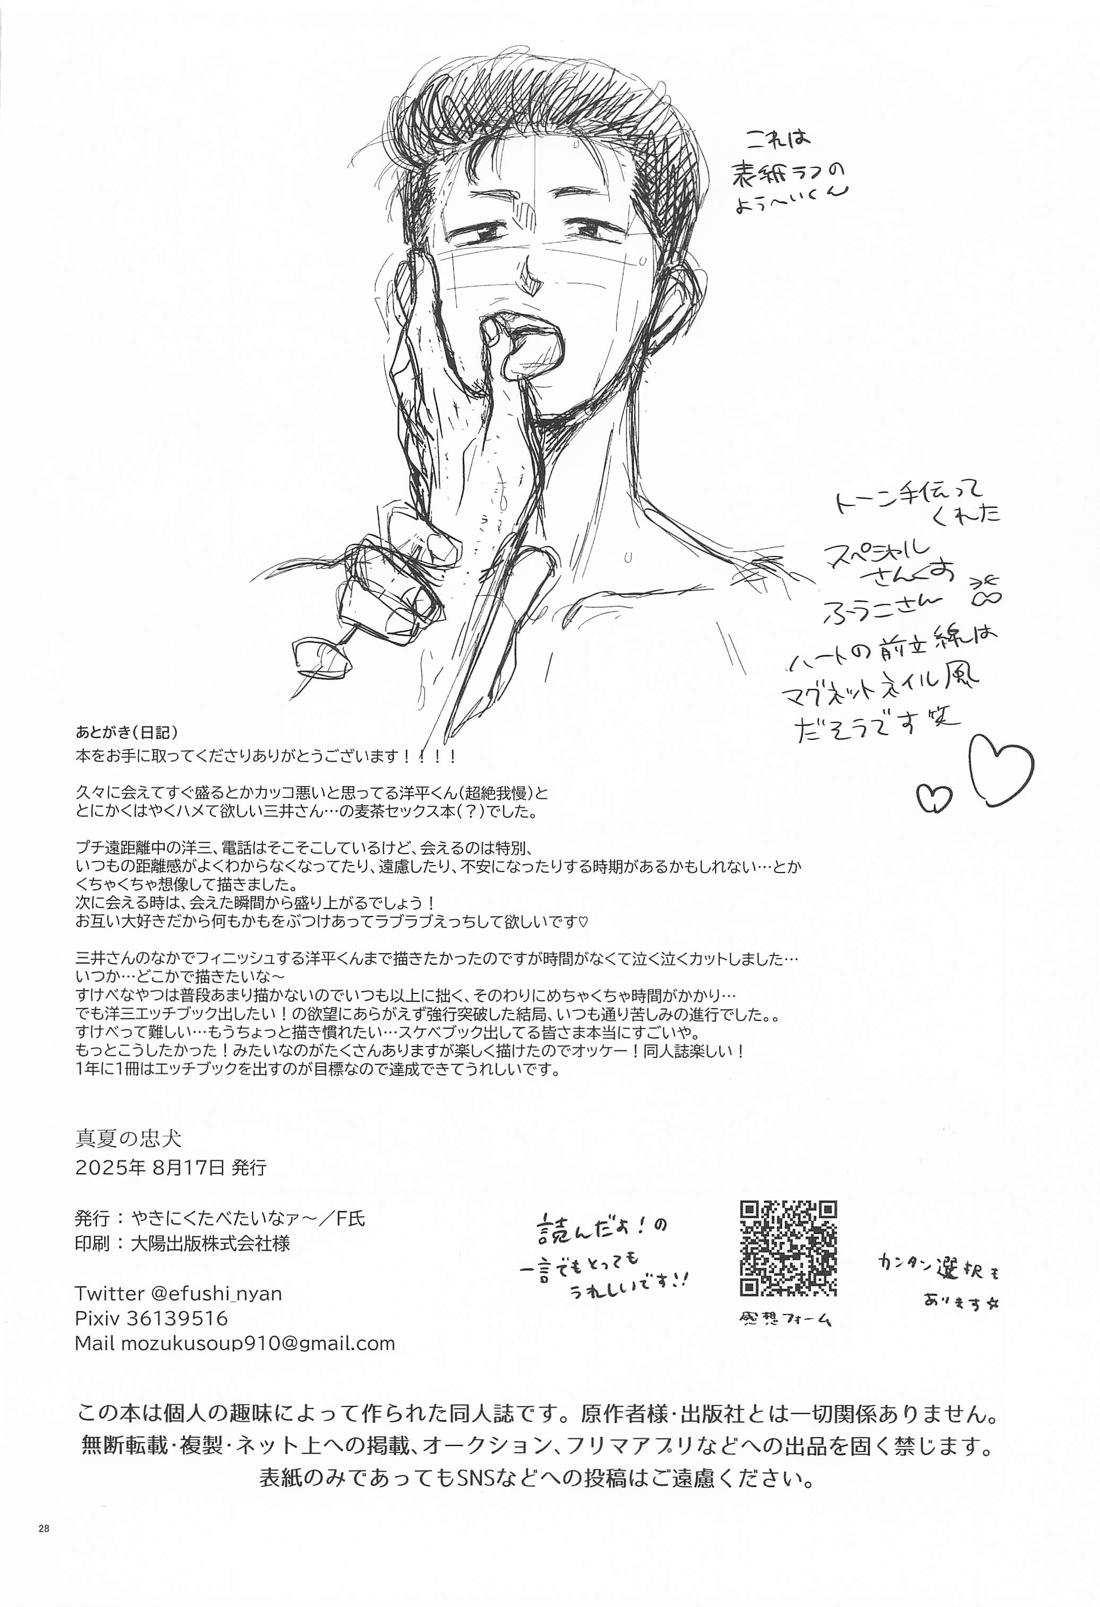 これは
表紙ラフの
ようへいくん
トーン手伝って
くれた
スペシャル
さんくす
ふうこさん
ハートの前立線は
マグネットネイル風
だそうです笑
あとがき(日記)
本をお手に取ってくださりありがとうございます！！！！
久々に会えてすぐ盛るとかカッコ悪いと思ってる洋平くん(超絶我慢)と
とにかくはやくハメて欲しい三井さん…の麦茶セックス本(？)でした。
プチ遠距離中の洋三、電話はそこそこしているけど、会えるのは特別、
いつもの距離感がよくわからなくなってたり、遠慮したり、不安になったりする時期があるかもしれない…とか
くちゃくちゃ想像して描きました。
次に会える時は、会えた瞬間から盛り上がるでしょう！
お互い大好きだから何もかもをぶつけあってラブラブえっちして欲しいです♡
三井さんのなかでフィニッシュする洋平くんまで描きたかったのですが時間がなくて泣く泣くカットしました…
いつか…どこかで描きたいな～
すけべなやつは普段あまり描かないのでいつも以上に拙く、そのわりにめちゃくちゃ時間がかかり…
でも洋三エッチブック出したい！の欲望にあらがえず強行突破した結局、いつも通り苦しみの進行でした。。
すけべって難しい…もうちょっと描き慣れたい…スケベブック出してる皆さま本当にすごいや。
もっとこうしたかった！みたいなのがたくさんありますが楽しく描けたのでオッケー！同人誌楽しい！
1年に1冊はエッチブックを出すのが目標なので達成できてうれしいです。
真夏の忠犬
2025年 8月17日 発行
発行：やきにくたべたいなァ～／F氏
印刷：大陽出版株式会社様
Twitter @efushi_nyan
Pixiv 36139516
Mail mozukusoup910@gmail.com
読んだよ！の
一言でもとっても
うれしいです!!
感想フォーム
カンタン選択も
あります☆
この本は個人の趣味によって作られた同人誌です。原作者様・出版社とは一切関係ありません。
無断転載・複製・ネット上への掲載、オークション、フリマアプリなどへの出品を固く禁じます。
表紙のみであってもSNSなどへの投稿はご遠慮ください。
28